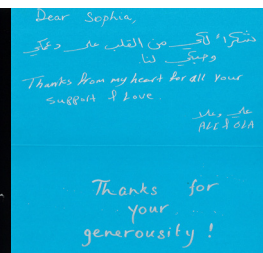 Dear Sophia,
شكراً لكي من القلب على دعمكي
وحبكي لنا
Thanks from my heart for all your
support & Love.
علي وعلا
ALI & OLA
Thanks for
your
generousity !